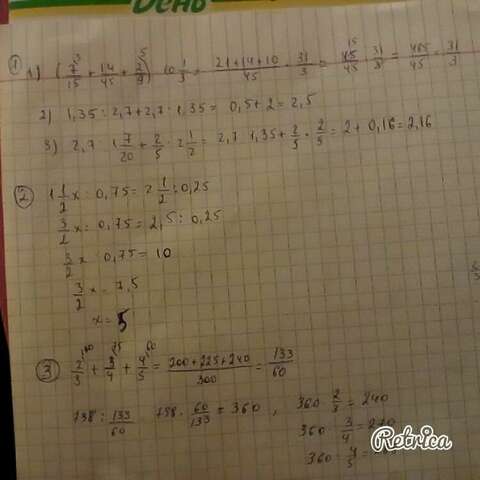 День
① 1) (7/15 + 14/45 + 2/9) : 10 1/3 = 21+14+10/45 : 31/3 = 45/45 : 31/3 = 465/45 = 31/3
2) 1,35 : 2,7 + 2,7 : 1,35 = 0,5 + 2 = 2,5
3) 2,7 : 1 7/20 + 2/5 : 2 1/2 = 2,7 : 1,35 + 2/5 · 2/5 = 2 + 0,16 = 2,16
② 1 1/2 x : 0,75 = 2 1/2 : 0,25
3/2 x : 0,75 = 2,5 : 0,25
3/2 x : 0,75 = 10
3/2 x = 7,5
x = 5
③ 2/3 + 3/4 + 4/5 = 200+225+240/300 = 133/60
798 : 133/60 798 · 60/133 = 360, 360 · 2/3 = 240
360 · 3/4 = 270
360 · 4/5 =
Retrica